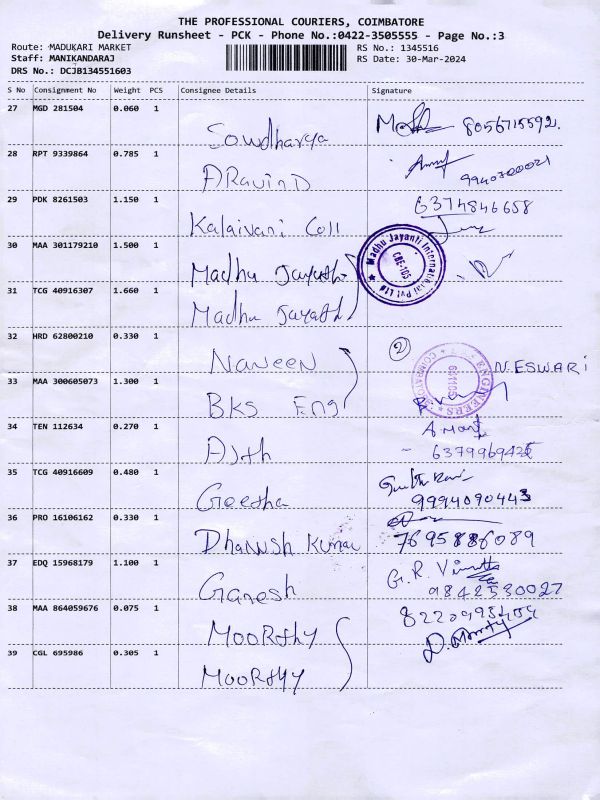 THE PROFESSIONAL COURIERS, COIMBATORE
Delivery Runsheet - PCK - Phone No.:0422-3505555 - Page No.:3
Route: MADUKARI MARKET
RS No.: 1345516
Staff: MANIKANDARAJ
RS Date: 30-Mar-2024
DRS No.: DCJB134551603
S No Consignment No Weight PCS Consignee Details Signature
27 MGD 281504 0.060 1
Sowdharya 8056715592.
28 RPT 9339864 0.785 1
ARavinD 9940700021
29 PDK 8261503 1.150 1
6374846658
Kalaivani Coll
30 MAA 301179210 1.500 1
Madhu Jayanti International Pvt Ltd
CBE-105
Madhu Jayath
31 TCG 40916307 1.660 1
Madhu Jayath
32 HRD 62800210 0.330 1
2
Naveen N.ESWARi
ENGINEERS COIMBATORE
33 MAA 300605073 1.300 1
BKS Eng
34 TEN 112634 0.270 1
Ajth 6379969425
35 TCG 40916609 0.480 1
Geetha 9994090443
36 PRO 16106162 0.330 1
Dhanush Kumar 7695886089
37 EDQ 15968179 1.100 1
G.R.
Ganesh 9842530027
38 MAA 864059676 0.075 1
MooRthy
D. Moorthy
39 CGL 695986 0.305 1
MooRthy